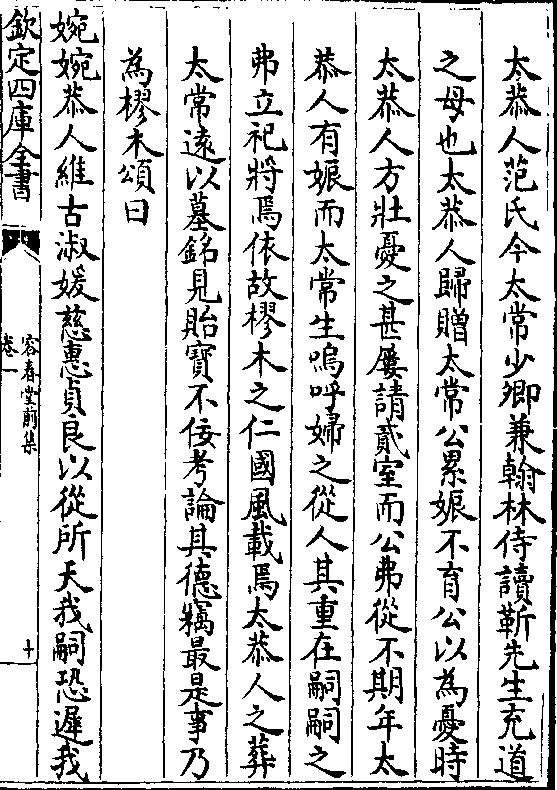 太恭人范氏今太常少卿兼翰林侍讀靳先生充道
之母也太恭人歸贈太常公累娠不育公以為憂時
太恭人方壯憂之甚屢請貳室而公弗從不期年太
恭人有娠而太常生嗚呼婦之從人其重在嗣嗣之
弗立祀將焉依故樛木之仁國風載焉太恭人之葬
太常遠以墓銘見貽寶不佞考論其德竊最是事乃
為樛木頌曰
婉婉恭人維古淑媛慈惠貞良以從所天我嗣恐遲我
欽定四庫全書
容春堂前集
卷一
十